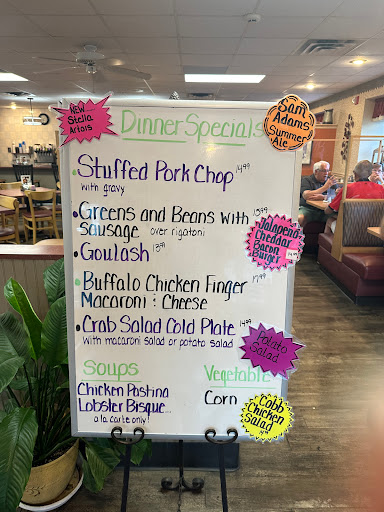 New
Stella
Artois
Dinner Specials
Sam
Adams
Summer
Ale
Stuffed Pork Chop 14.99
with gravy
Greens and Beans with 13.99
Sausage over rigatoni
Jalapeno
Cheddar
Bacon
Burger
Goulash 13.99
Buffalo Chicken Finger 17.99
Macaroni & Cheese
Crab Salad Cold Plate 14.99
with macaroni salad or potato salad
Potato
Salad
Soups
Chicken Pastina
Lobster Bisque...
a la carte only!
Vegetable
Corn
Cobb
Chicken
Salad